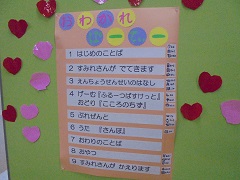 おわかれ
1 はじめのことば
2 すみれさんが でてきます
3 えんちょうせんせいのはなし
4 げーむ『ふるーつばすけっと』
おどり『こころのちず』
5 ぷれぜんと
6 うた 『さんぽ』
7 おわりのことば
8 おやつ
9 すみれさんが かえります